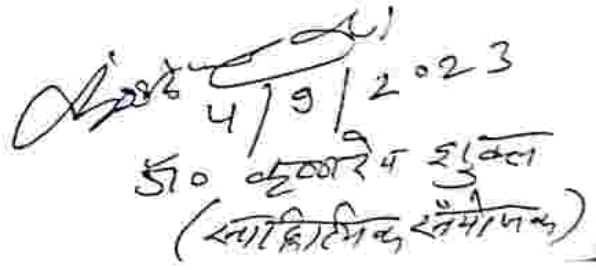 4/9/2023
डॉ० कृष्णदेव शुक्ल
(साहित्यिक संयोजक)